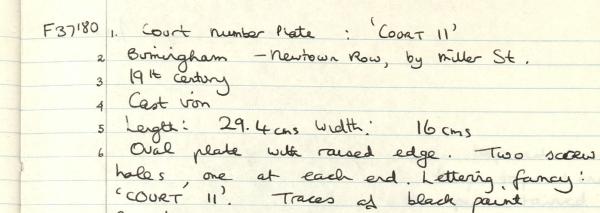 F37'80 1. Court number Plate : 'COURT 11'
2 Birmingham - Newtown Row, by Miller St.
3 19th century
4 Cast iron
5 Length: 29.4 cms Width: 16 cms
6 Oval plate with raised edge. Two screw
holes, one at each end. Lettering, fancy:
'COURT 11'. Traces of black paint